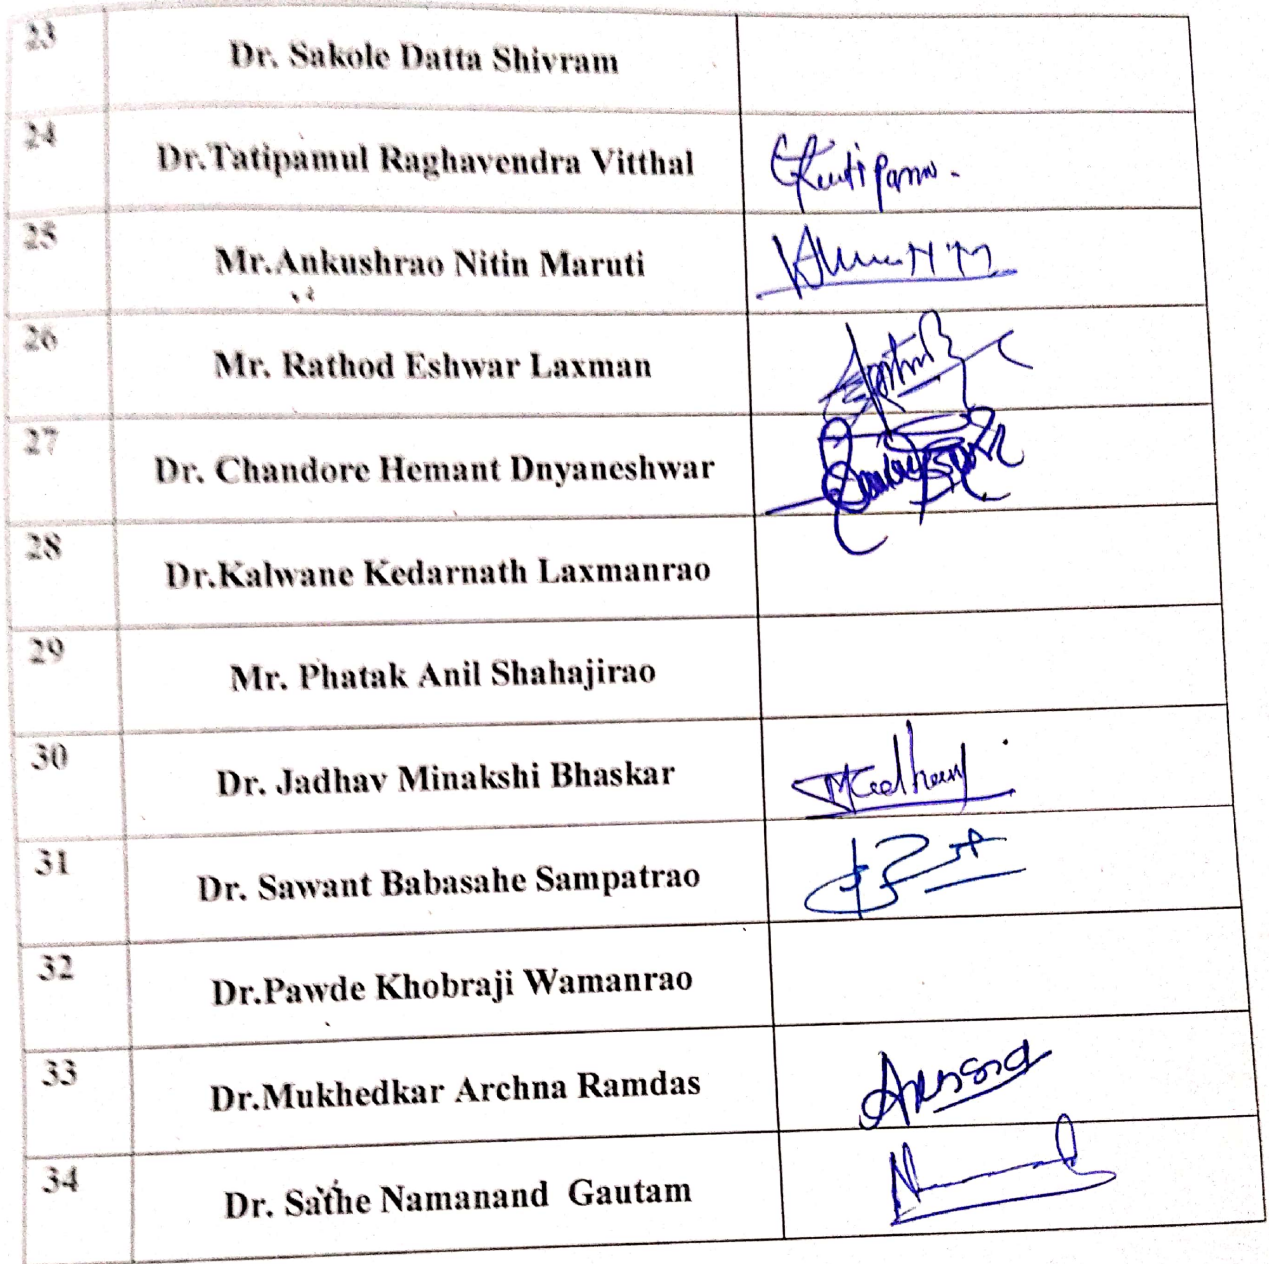 23 Dr. Sakole Datta Shivram
24 Dr.Tatipamul Raghavendra Vitthal
25 Mr.Ankushrao Nitin Maruti
26 Mr. Rathod Eshwar Laxman
27 Dr. Chandore Hemant Dnyaneshwar
28 Dr.Kalwane Kedarnath Laxmanrao
29 Mr. Phatak Anil Shahajirao
30 Dr. Jadhav Minakshi Bhaskar
31 Dr. Sawant Babasahe Sampatrao
32 Dr.Pawde Khobraji Wamanrao
33 Dr.Mukhedkar Archna Ramdas
34 Dr. Sathe Namanand Gautam